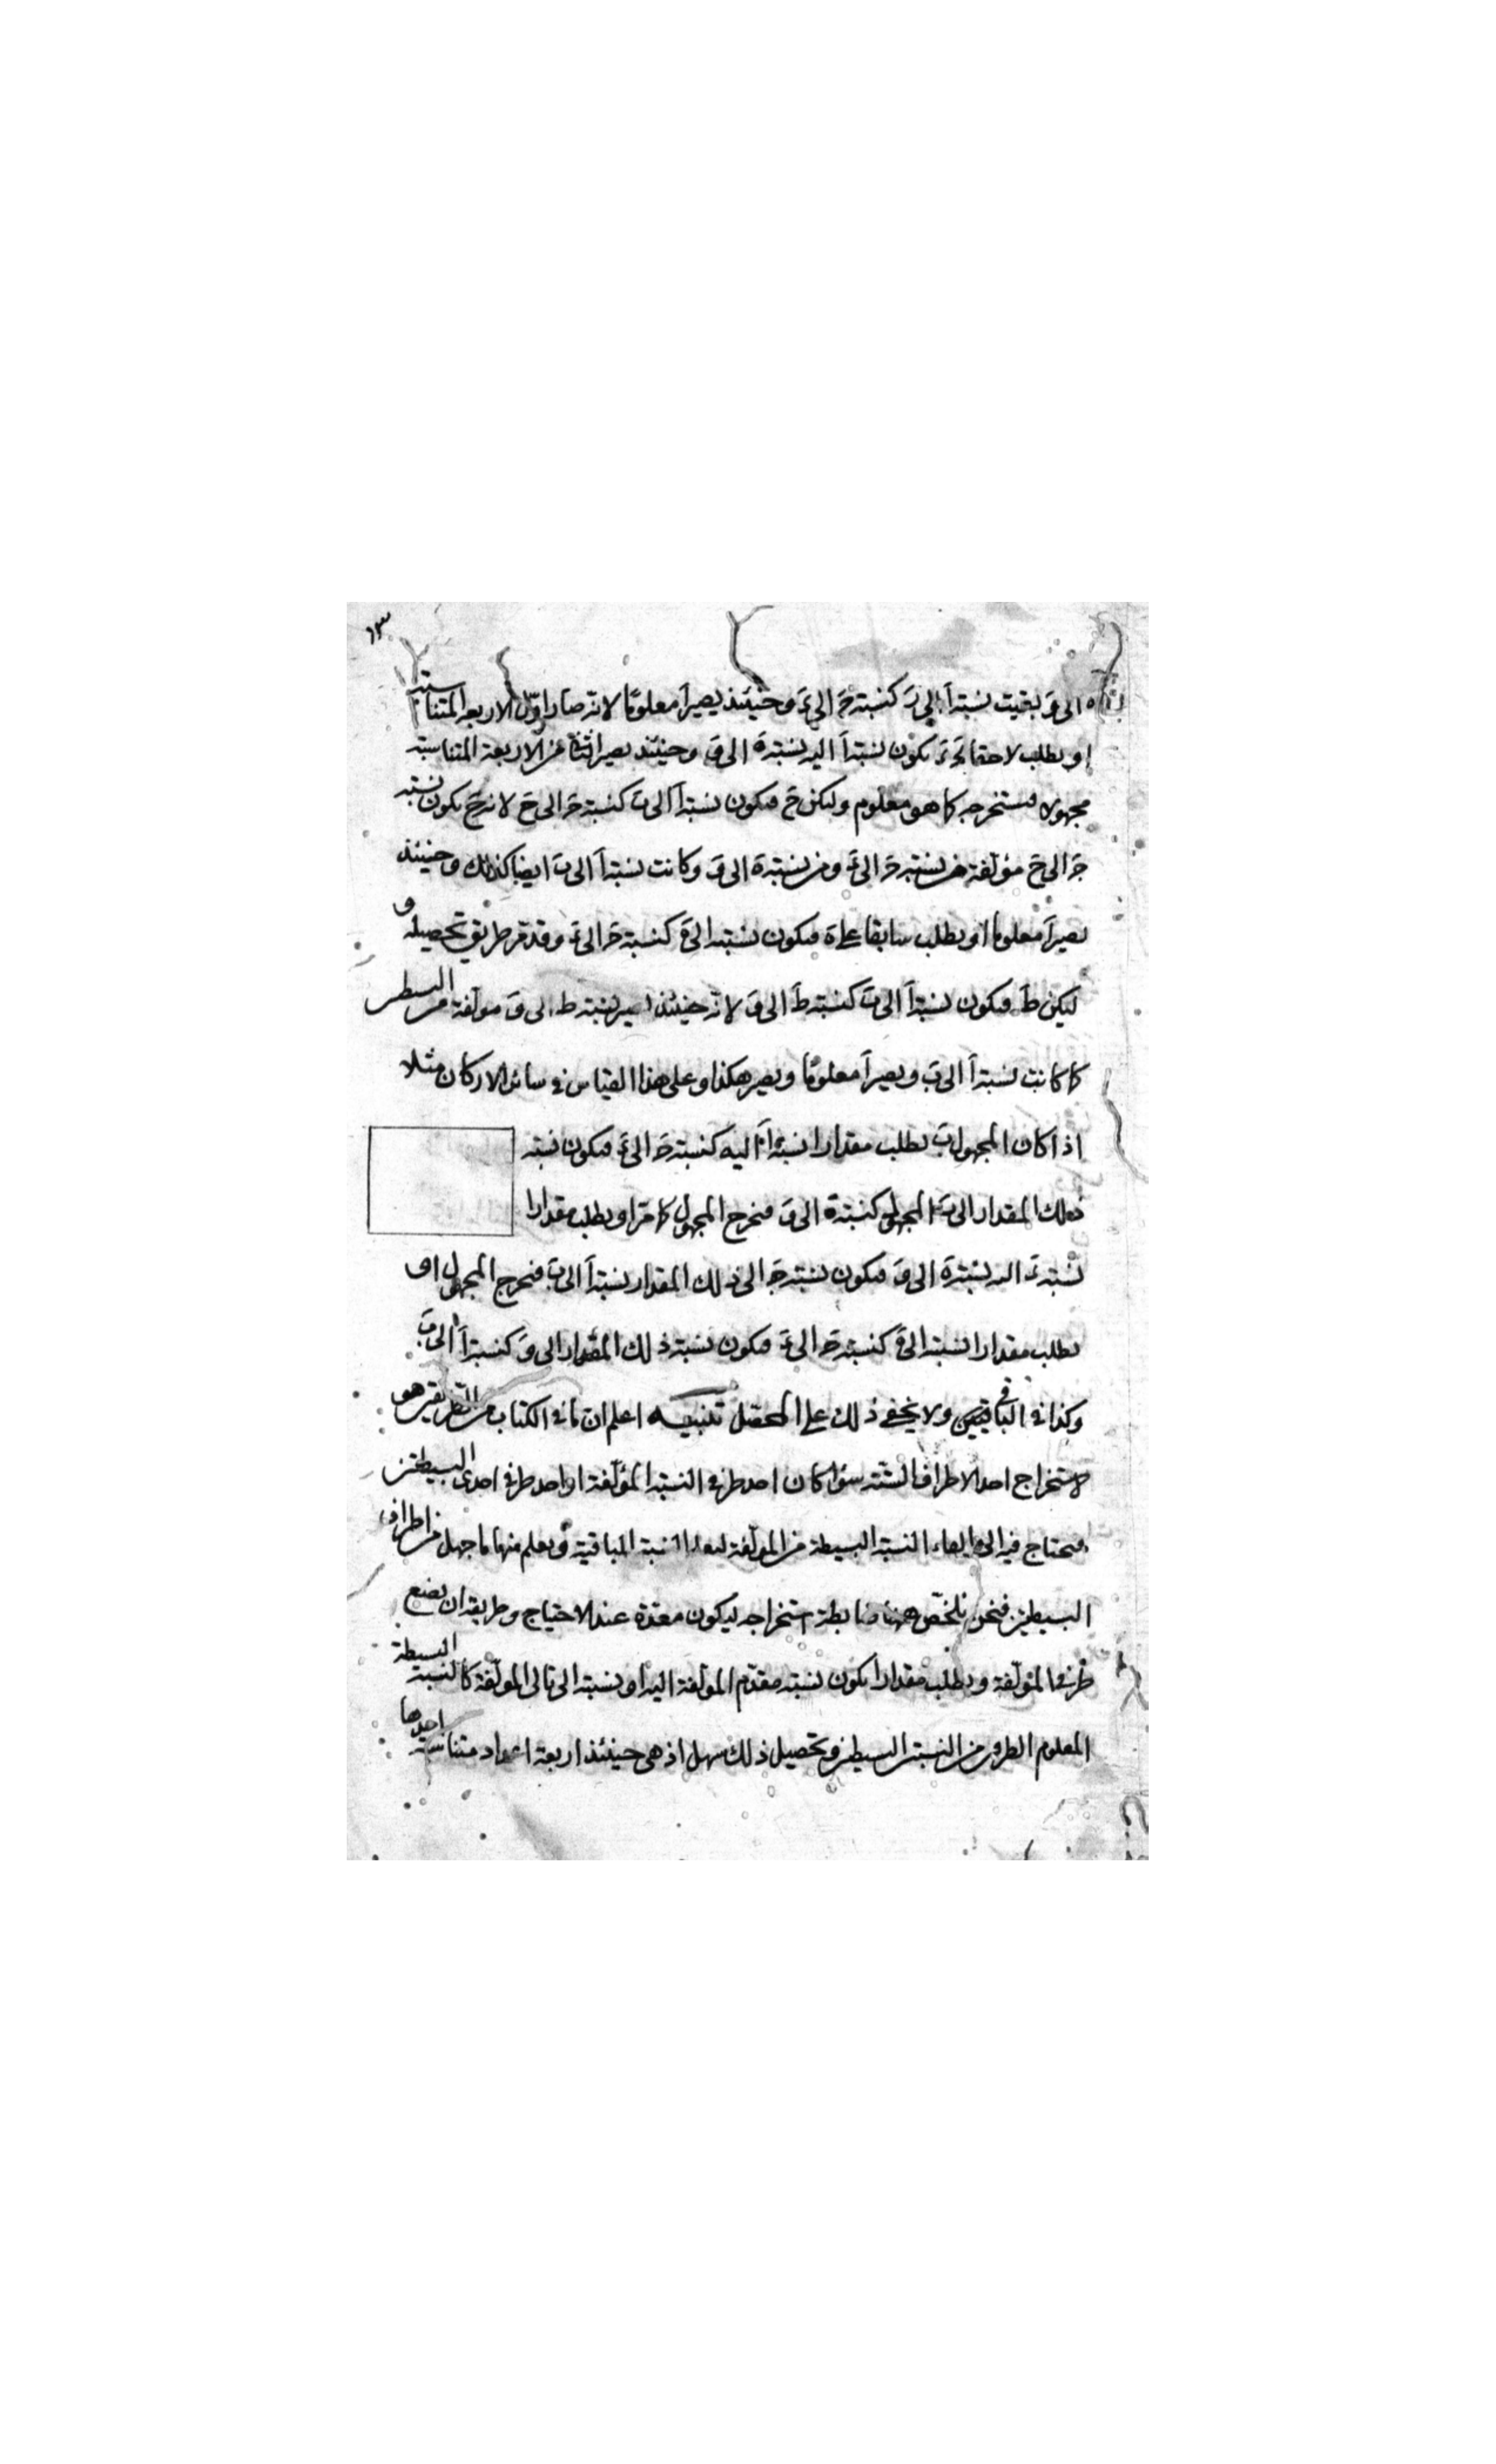 ١٣
الى و بقيت نسبة ا الى ز كنسبة ج الى ء و حينئذ يصير ا معلوما لانه صار اول الاربعة المتناسبة
او يطلب لاحقا يكون نسبة ء اليه نسبة ه الى و و حينئذ يصير من الاربعة المتناسبة
مجهولا فيستخرجه كما هو معلوم و ليكن ح فيكون نسبة ا الى ب كنسبة ج الى ح لانه ح يكون نسبة
ج الى ح مؤلفة من نسبة ج الى ء و من نسبة ه الى و و كانت نسبة ا الى ب ايضا كذلك و حينئذ
يصير ا معلوما او يطلب سابقا على ه فيكون نسبته الى ه كنسبة ج الى ء و قد مر طريق تحصيله و
ليكن ط فيكون نسبة ا الى ب كنسبة ط الى و لانه حينئذ يصير نسبة ط الى و مؤلفة من
كما كانت نسبة ا الى ب و يصير ا معلوما و يصير هكذا و على هذا القياس في سائر الاركان مثلا
اذا كان المجهول ب يطلب مقدارا نسبة ا اليه كنسبة ج الى ء فيكون نسبة
ذلك المقدار الى ب المجهول كنسبة ه الى و فيخرج المجهول كما مر او يطلب مقدارا
نسبة ء اليه نسبة ه الى و فيكون نسبة ج الى ذلك المقدار نسبة ا الى ب فيخرج المجهول او
يطلب مقدارا نسبته الى ه كنسبة ج الى ء فيكون نسبة ذلك المقدار الى و كنسبة ا الى ب
و كذا في الباقيين و لا يخفى ذلك على المحصل تنبيه اعلم ان ما في الكتاب من الطريق هو
لاستخراج احد الاطراف الستة سواء كان احد طرفي النسبة المؤلفة او احد طرفي احدى البسيطتين
فيحتاج فيه الى القاء النسبة البسيطة من المؤلفة النسبة الباقية و يعلم منها ما جهل من اطراف
البسيطتين فنحن نلخص ههنا ضابطة استخراجه ليكون معدة عند الاحتياج و طريقه ان يضع
طرفي المؤلفة و يطلب مقدارا يكون نسبة مقدم المؤلفة اليه او نسبته الى تالي المؤلفة كالنسبة البسيطة
المعلوم الطرفين من النسبتين البسيطتين و تحصيل ذلك سهل اذ هي حينئذ اربعة اعداد متناسبة احدها